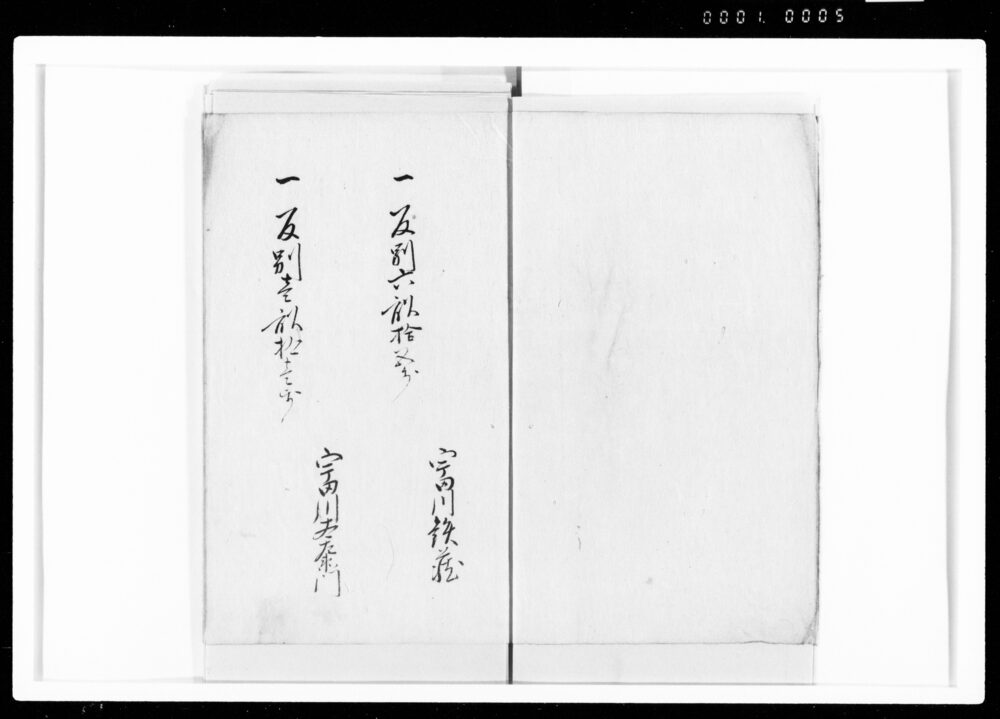 0001. 0005
一 反別六畝拾歩
宇田川鉄蔵
一 反別壱畝拾壱歩
宇田川左衛門